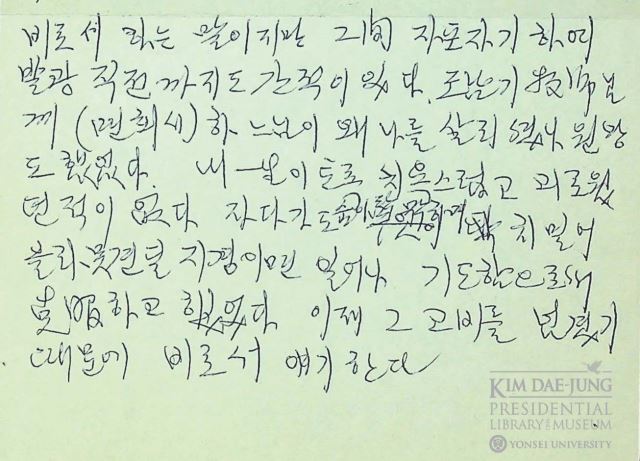 비로서 하는 말이지만 그旬 자포자기하여
발광 직전까지도 간적이 있다. 도날기 牧師님
께 (면회시) 하느님이 왜 나를 살리셨나 원망
도 했었다. 내 一生이 토록 치욕스럽고 괴로웠
던적이 없다 자다가도 치밀어
올라 못견딜 지경이면 일어나 기도함으로써
克服하고 하였었다 이제 그 고비를 넘겼기
때문에 비로서 얘기한다
KIM DAE-JUNG
PRESIDENTIAL
LIBRARY AND MUSEUM
YONSEI UNIVERSITY